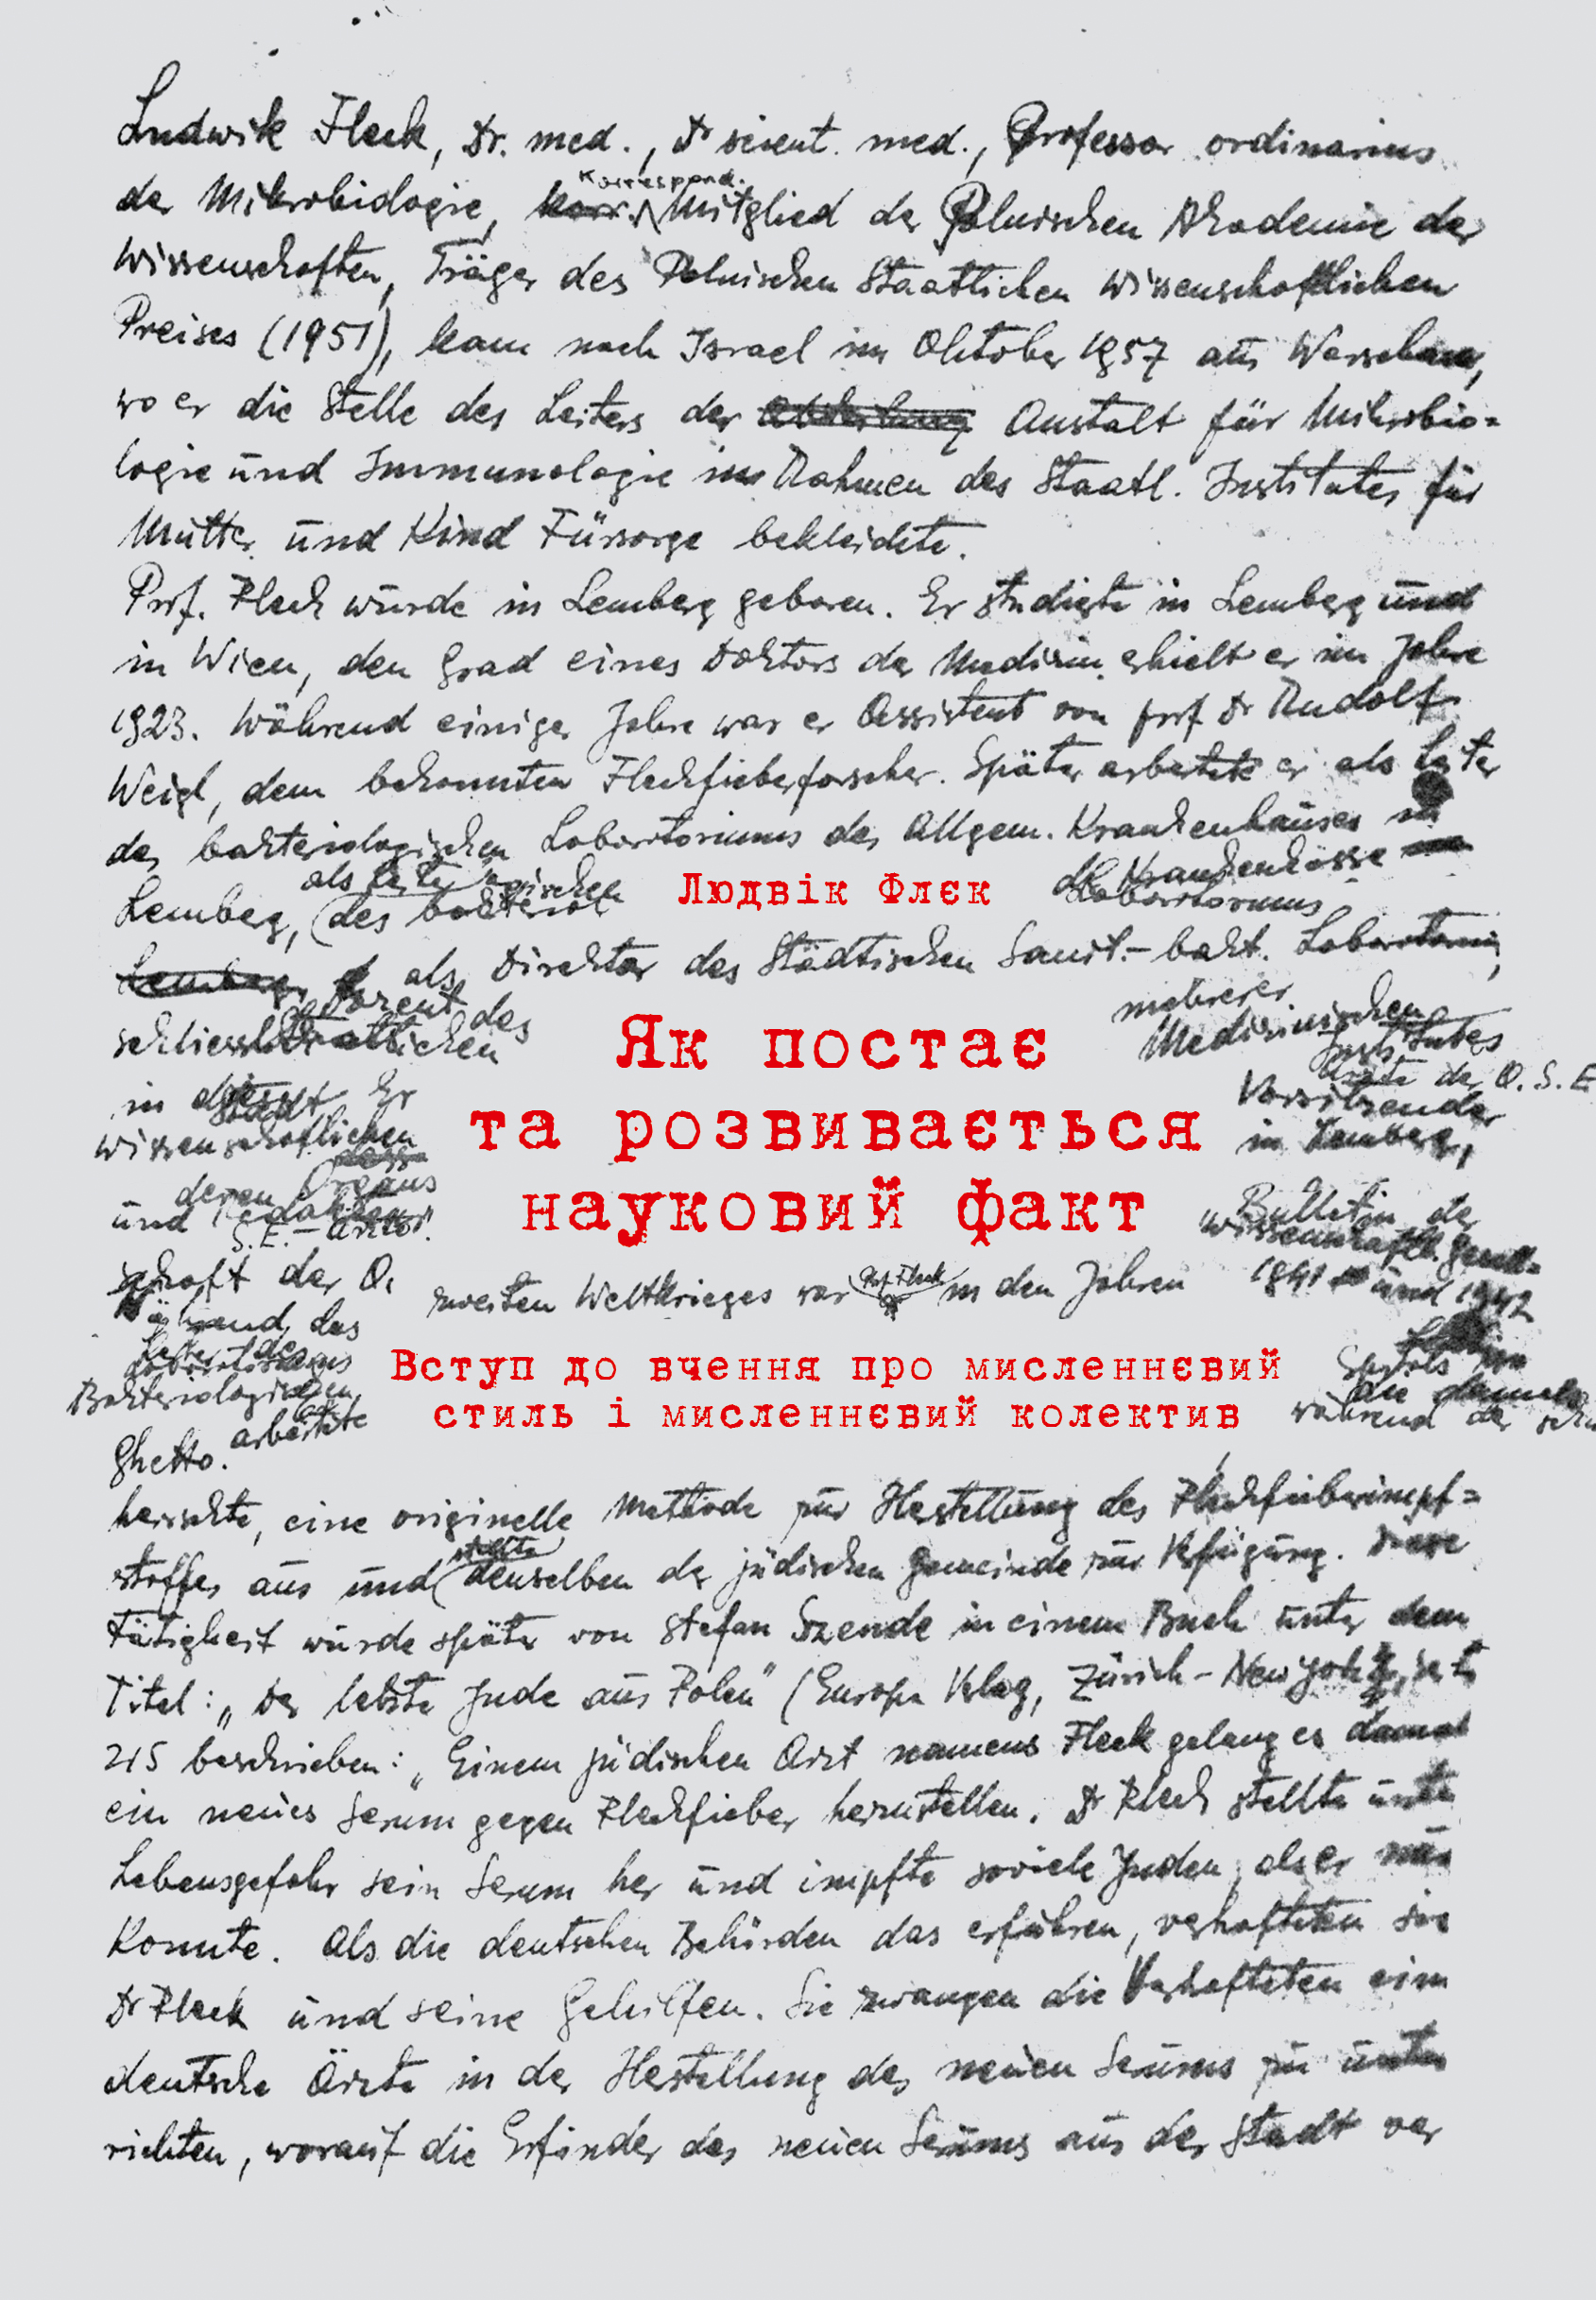 Ludwik Fleck, Dr. med., Dr scient. med., Professor ordinarius
der Mikrobiologie, Korrespond. Mitglied der Polnischen Akademie der
Wissenschaften, Träger des Polnischen Staatlichen Wissenschaftlichen
Preises (1951), kam nach Israel im Oktober 1957 aus Warschau,
wo er die Stelle des Leiters der Anstalt für Mikrobio=
logie und Immunologie im Rahmen des Staatl. Institutes für
Mutter und Kind Fürsorge bekleidete.
Prof. Fleck wurde in Lemberg geboren. Er studierte in Lemberg und
in Wien, den Grad eines Doktors der Medizin erhielt er im Jahre
1923. Während einiger Jahre war er Assistent von prof Dr Rudolf
Weigl, dem bekannten Fleckfieberforscher. Später arbeitete er als Leiter
des bakteriologischen Laboratoriums des Allgem. Krankenhauses in
als Leiter der Krankenkasse
Lemberg, des Людвік Флєк Laboratoriums
als Direktor des Städtischen Sanit.-bakt.
Dozent des mehrerer
Medizinischen
Як постає Institutes
in Er der O. S. E
Vorsitzender
wissenschaftlichen та розвивається in Lemberg,
deren Organs
und Bulletin der
S. E. - науковий факт wissenschaftl.
schaft der O. zweiten Weltkrieges war Prof. Fleck in den Jahren 1941 und 1942
des
Laboratoriums Вступ до вчення про мисленнєвий Spitals
Bakteriologischen die damals
arbeitete стиль і мисленнєвий колектив während der
Ghetto.
herrschte, eine originelle Methode zur Herstellung des Fleckfieberimpf=
stoffes aus und stellte denselben der jüdischen Gemeinde zur Verfügung. Diese
Tätigkeit wurde später von Stefan Szende in einem Buch unter dem
Titel: „Der letzte Jude aus Polen" (Europa Verlag, Zürich - New York,
215 beschrieben: „Einem jüdischen Arzt namens Fleck gelang es damal
ein neues Serum gegen Fleckfieber herzustellen. Dr Fleck stellte unter
Lebensgefahr sein Serum her und impfte soviele Juden, als er nur
konnte. Als die deutschen Behörden das erfuhren, verhafteten sie
Dr Fleck und seine Gehilfen. Sie zwangen die Verhafteten eim
deutsche Ärzte in der Herstellung des neuen Serums zu unter
richten, worauf die Erfinder des neuen Serums aus der Stadt ver